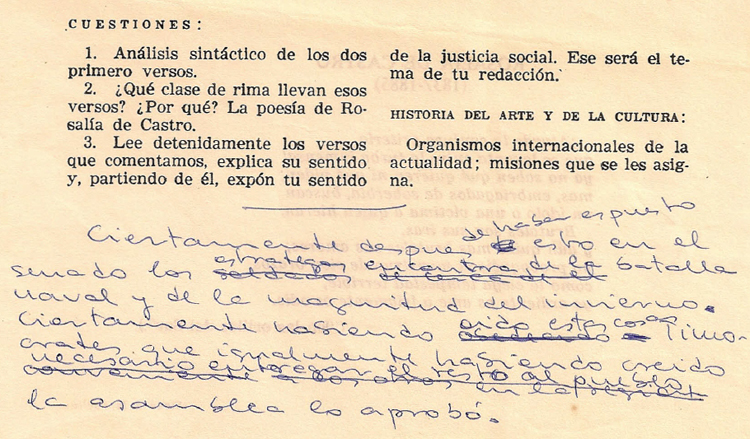 CUESTIONES:
1. Análisis sintáctico de los dos
primero versos.
2. ¿Qué clase de rima llevan esos
versos? ¿Por qué? La poesía de Ro-
salía de Castro.
3. Lee detenidamente los versos
que comentamos, explica su sentido
y, partiendo de él, expón tu sentido
de la justicia social. Ese será el te-
ma de tu redacción.
HISTORIA DEL ARTE Y DE LA CULTURA:
Organismos internacionales de la
actualidad; misiones que se les asig-
na.
de haber espuesto
Ciertamente despues esto en el
estrategas encontra de la
senado los soldados batalla
naval y de la magnitud del invierno.
Ciertamente habiendo oido estas cosas Timo-
crates que igualmente habiendo creido
necesario entregar el resto al pueblo
conveniente a los otros en la
la asamblea lo aprobó.